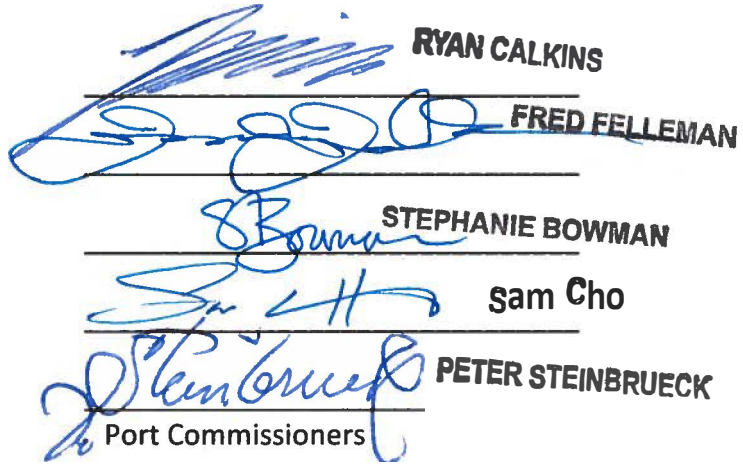 RYAN CALKINS
FRED FELLEMAN
SBowman STEPHANIE BOWMAN
Sam Cho
PSteinbrueck PETER STEINBRUECK
Port Commissioners